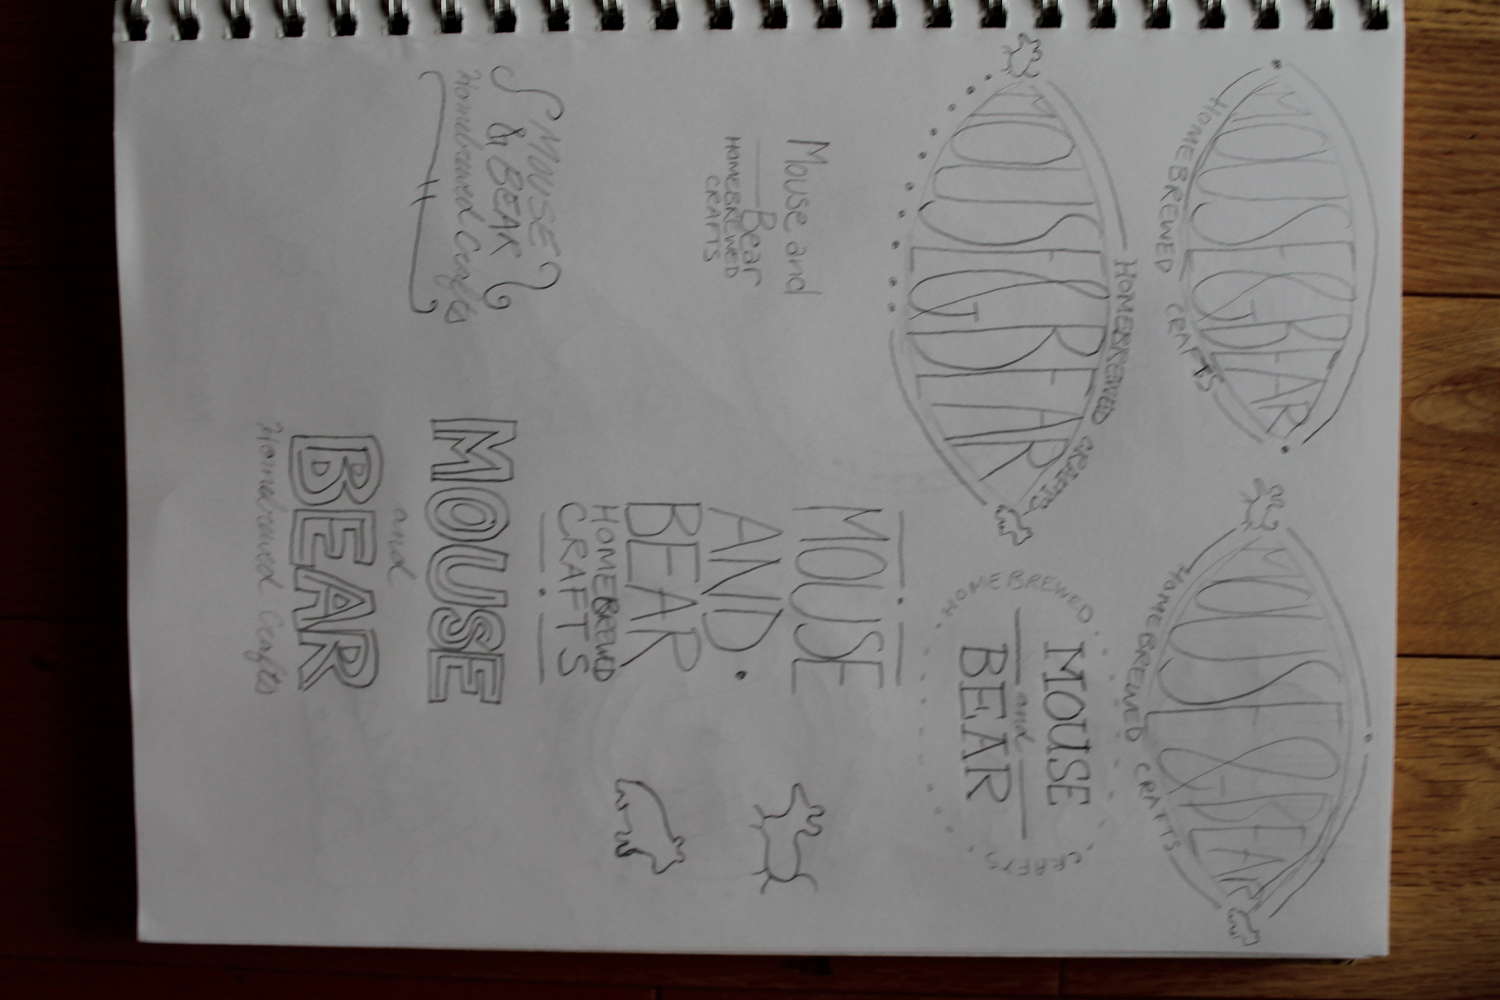 MOUSE & BEAR
HOMEBREWED CRAFTS
MOUSE & BEAR
HOMEBREWED CRAFTS
HOMEBREWED CRAFTS
MOUSE & BEAR
HOMEBREWED
MOUSE
and
BEAR
CRAFTS
Mouse and
Bear
HOMEBREWED
CRAFTS
MOUSE
AND
BEAR
HOMEBREWED
CRAFTS
MOUSE
& BEAR
Homebrewed Crafts
MOUSE
and
BEAR
Homebrewed Crafts